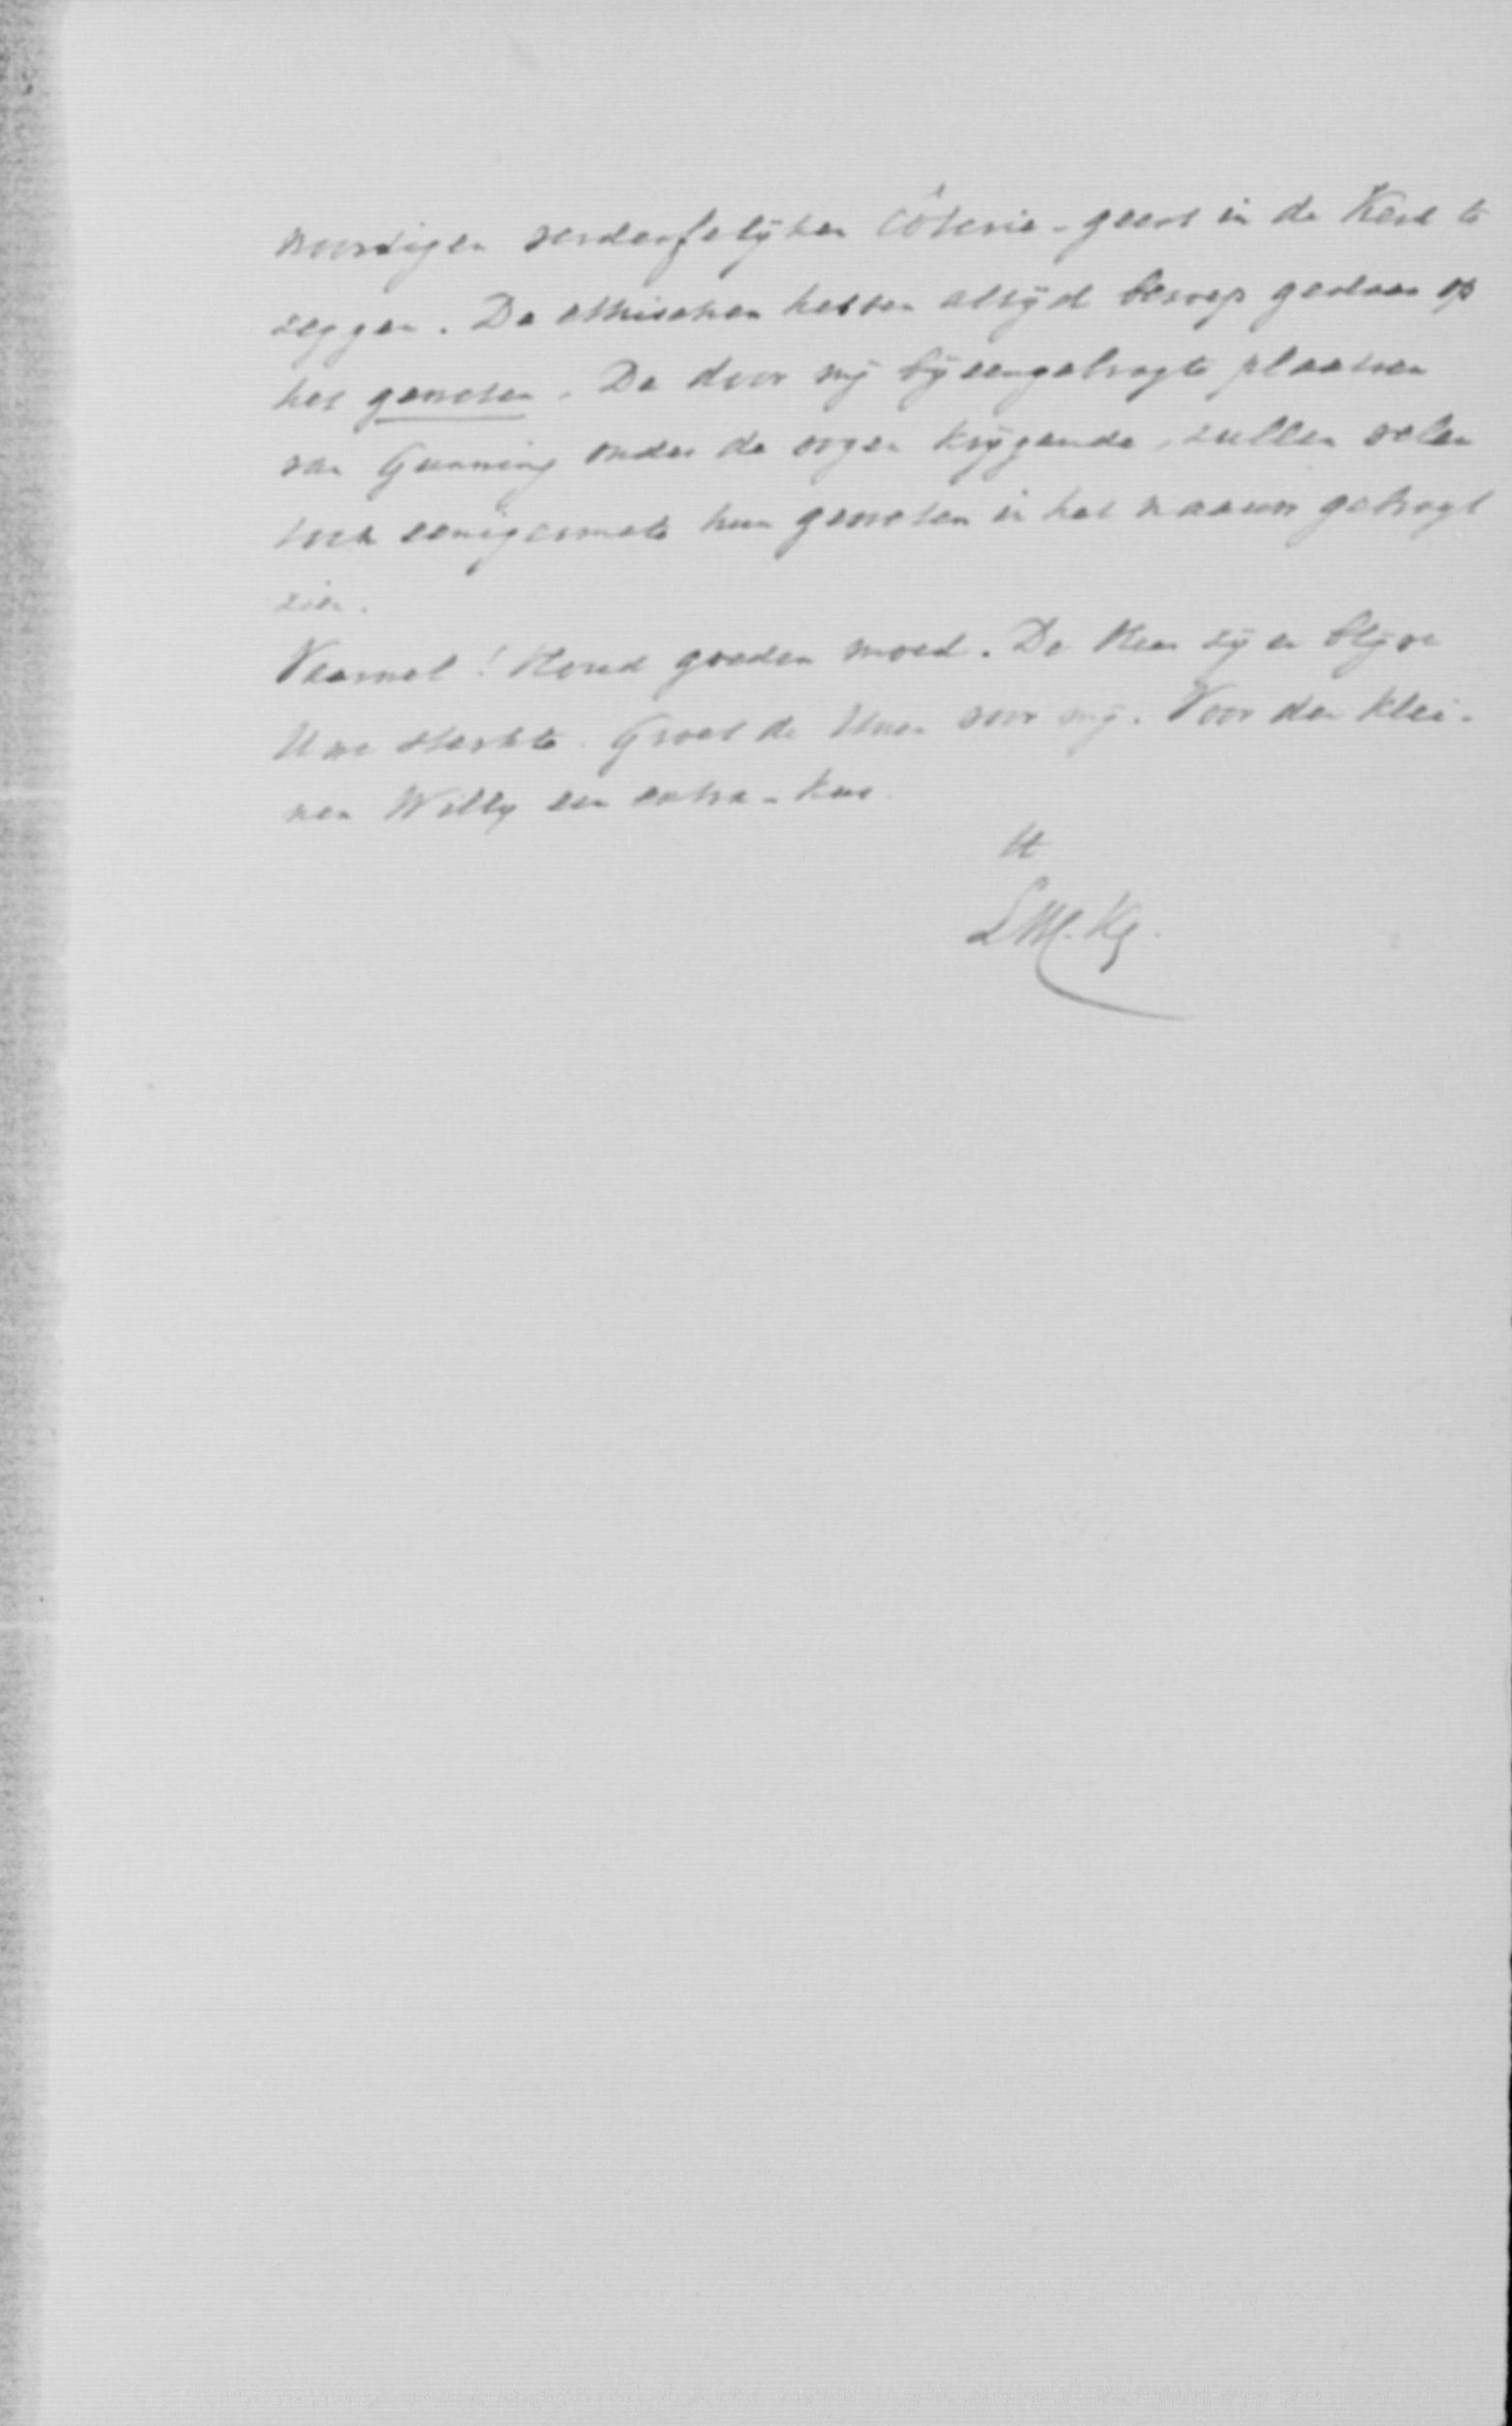 woordigen verderfelijken côterie-geest in de Kerk te
zeggen. De ethischen hebben altijd beroep gedaan op
het geweten. De door mij bijeengebragte plaatsen
van Gunning onder de oogen krijgende, zullen velen
toch eenigermate hun geweten in het naauw gebragt
zien.
Vaarwel! Houd goeden moed. De Heer zij en blijve
Uwe sterkte. Groet de Uwen voor mij. Voor den klei-
nen Willy een extra-kus.
tt